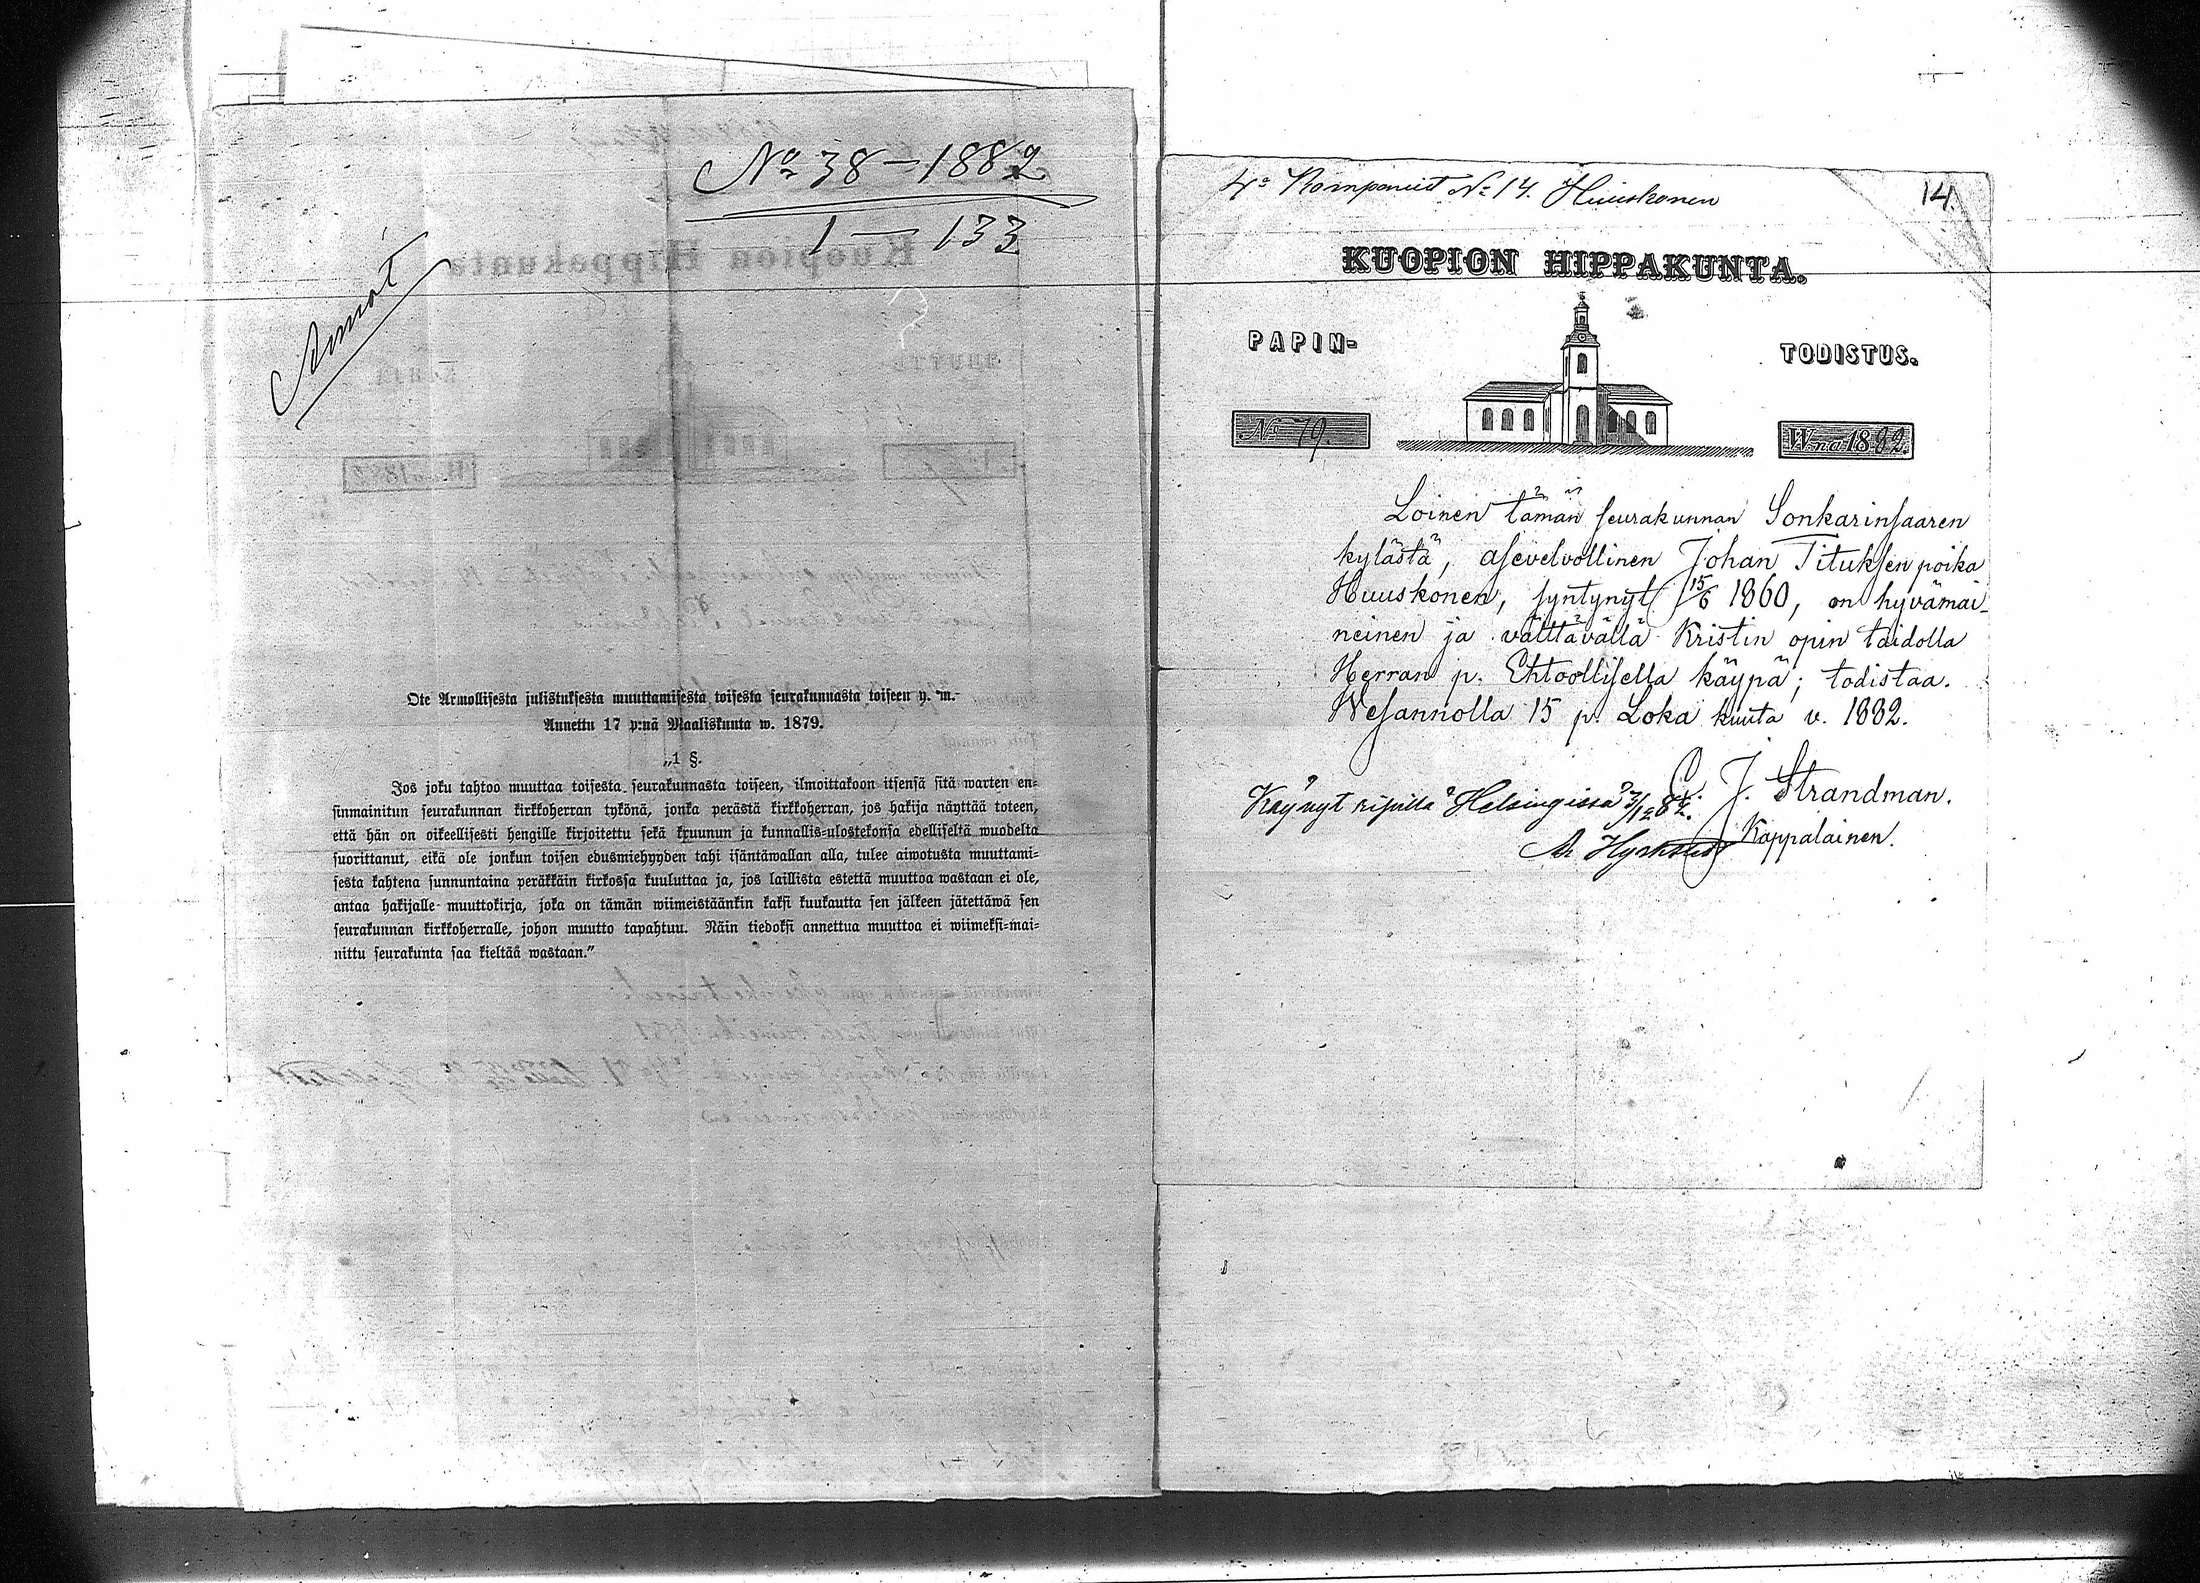 No 38-1882
1 — 133
Ote Armollisesta julistuksesta muuttamisesta toisesta seurakunnasta toiseen y. m.
Annettu 17 p:nä Maaliskuuta w. 1879.
„1 §.
Jos joku tahtoo muuttaa toisesta seurakunnasta toiseen, ilmoittakoon itsensä sitä warten en-
sinmainitun seurakunnan kirkkoherran tykönä, jonka perästä kirkkoherran, jos hakija näyttää toteen,
että hän on oikeellisesti hengille kirjoitettu sekä kruunun ja kunnallis-ulostekonsa edelliseltä wuodelta
suorittanut, eikä ole jonkun toisen edusmiehyyden tahi isäntäwallan alla, tulee aiwotusta muuttami-
sesta kahtena sunnuntaina peräkkäin kirkossa kuuluttaa ja, jos laillista estettä muuttoa wastaan ei ole,
antaa hakijalle muuttokirja, joka on tämän wiimeistäänkin kaksi kuukautta sen jälkeen jätettäwä sen
seurakunnan kirkkoherralle, johon muutto tapahtuu. Näin tiedoksi annettua muuttoa ei wiimeksi-mai-
nittu seurakunta saa kieltää wastaan."
4a Kompaniet No 14. Huuskonen
14.
KUOPION HIPPAKUNTA.
PAPIN-
TODISTUS.
No 79.
W:na 1882.
Loinen tämän seurakunnan Sonkarinsaaren
kylästä, asevelvollinen Johan Tituksen poika
Huuskonen, syntynyt 15/6 1860, on hyvämai-
neinen ja välttävällä Kristin opin taidolla
Herran p. Ehtoollisella käypä; todistaa.
Wesannolla 15 p. Loka kuuta v. 1882.
C. J. Strandman.
Kappalainen.
Käynyt ripillä Helsingissä 3/12 82.